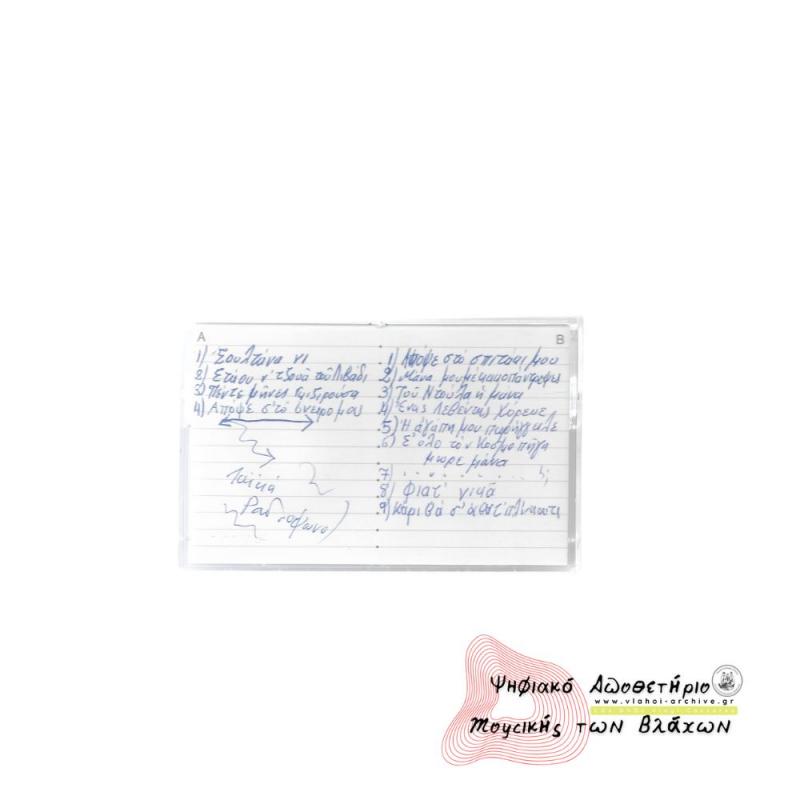 A
1) Σουλτάνα νι
2) Στάου ν'τζουά του Λιβάδι
3) Πέντε μήνες
4) Απόψε στό όνειρό μου
Λαϊκά
Ραδιόφωνο
B
1) Απόψε στό σπιτάκι μου
2) Μάνα μου με κακοπάντρεψες
3) Τού Ντούλα η μάνα
4) Ένας Λεβέντης Χόρευε
5) Η άγάπη μου παρήγγειλε
6) Σ' όλο τόν κόσμο πήγα
μωρέ μάνα
7) . . . . . . . . ;
8) Φιατ' νικά
9) Κάρι βά σ'
Ψηφιακό Αποθετήριο
www.vlahoi-archive.gr
Μουσικής των Βλάχων